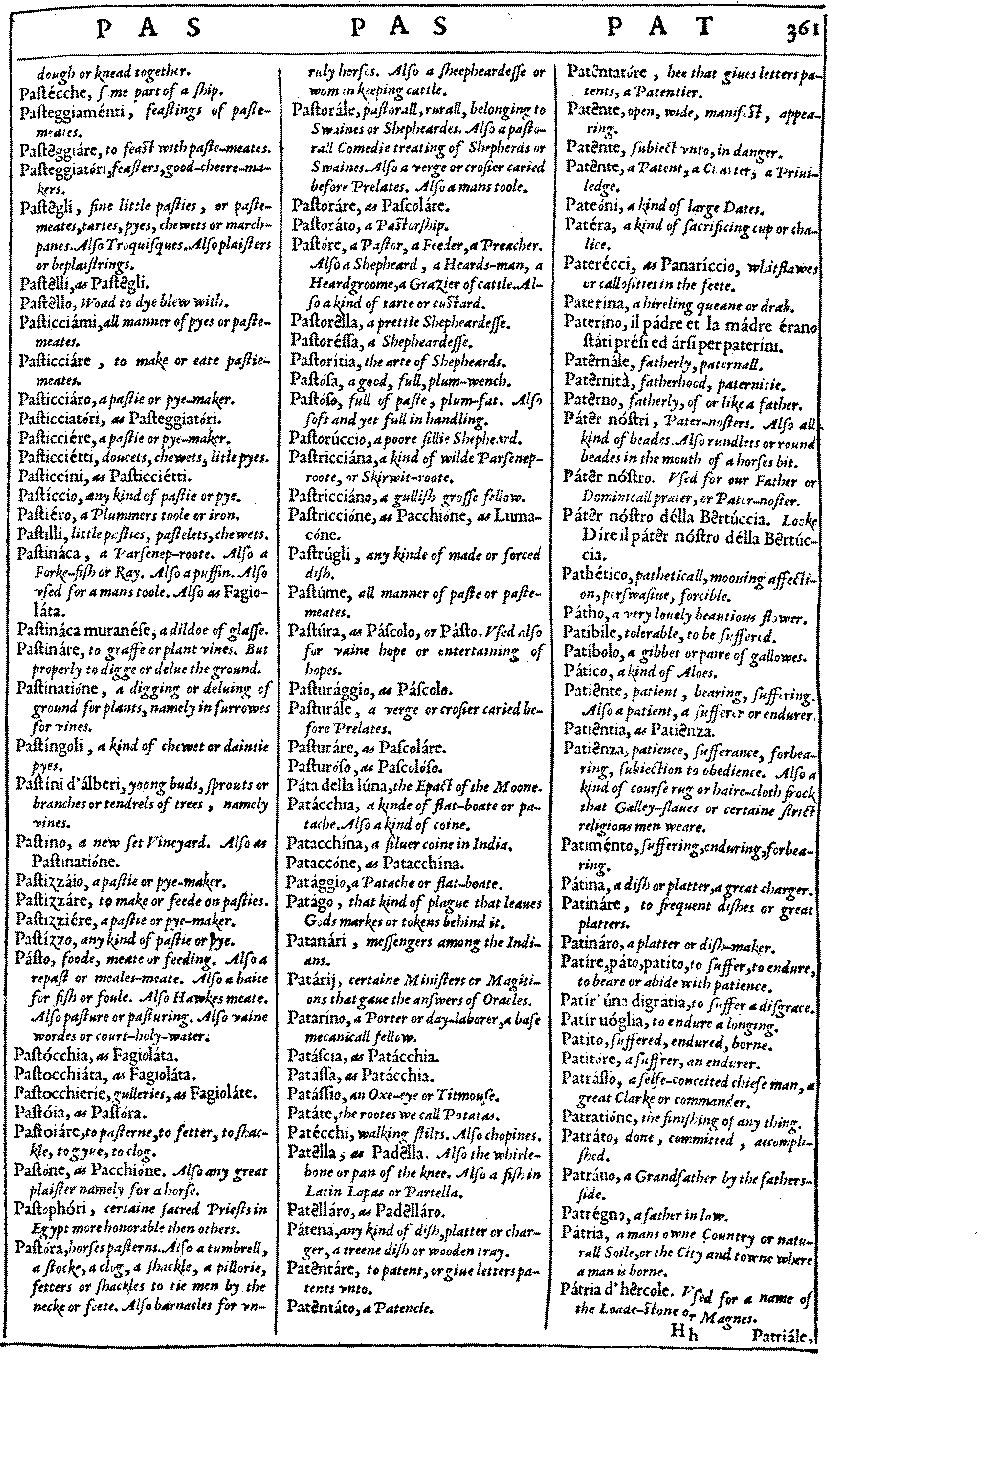 P A S
P A S
P A T
361
dough or knead together.
Pastécche, some part of a ship.
Pasteggiaménti, feastings of paste-
meates.
Pastêggiáre, to feast with paste-meates.
Pasteggiatóri, feasters, good-cheere-ma-
kers.
Pastêgli, fine little pasties, or paste-
meates, tartes, pyes, chewets or march-
panes. Also Troquisques. Also plaisters
or beplaistrings.
Pastêlli, as Pastêgli.
Pastêllo, Woad to dye blew with.
Pasticciámi, all manner of pyes or paste-
meates.
Pasticciáre, to make or eate pastie-
meates.
Pasticciáro, a pastie or pye-maker.
Pasticciatóri, as Pasteggiatóri.
Pasticciére, a pastie or pye-maker.
Pasticciétti, doucets, chewets, litle pyes.
Pasticcíni, as Pasticciétti.
Pastíccio, any kind of pastie or pye.
Pastiéro, a Plummers toole or iron.
Pastílli, little pasties, pastelets, chewets.
Pastináca, a Parsenep-roote. Also a
Forke-fish or Ray. Also a puffin. Also
vsed for a mans toole. Also as Fagio-
láta.
Pastináca muranése, a dildoe of glasse.
Pastináre, to graffe or plant vines. But
properly to digge or delue the ground.
Pastinatióne, a digging or deluing of
ground for plants, namely in furrowes
for vines.
Pastíngoli, a kind of chewet or daintie
pyes.
Pastíni d'álberi, yoong buds, sprouts or
branches or tendrels of trees, namely
vines.
Pastino, a new set Vineyard. Also as
Pastinatióne.
Pastizzáio, a pastie or pye-maker.
Pastizzáre, to make or feede on pasties.
Pastizziére, a pastie or pye-maker.
Pastízzo, any kind of pastie or pye.
Pásto, foode, meate or feeding. Also a
repast or meales-meate. Also a baite
for fish or foule. Also Hawkes meate.
Also pasture or pasturing. Also vaine
wordes or court-holy-water.
Pastócchia, as Fagioláta.
Pastocchiáta, as Fagioláta.
Pastocchierie, gulleries, as Fagioláte.
Pastóia, as Pastóra.
Pastoiáre, to pasterne, to fetter, to shac-
kle, to gyue, to clog.
Pastóne, as Pacchióne. Also any great
plaister namely for a horse.
Pastophóri, certaine sacred Priests in
Egypt more honorable then others.
Pastóra, horses pasterns. Also a tumbrell,
a stocke, a clog, a shackle, a pillorie,
fetters or shackles to tie men by the
necke or feete. Also barnacles for vn-
ruly horses. Also a sheepheardesse or
woman keeping cattle.
Pastorále, pastorall, rurall, belonging to
Swaines or Shepheardes. Also a pasto-
rall Comedie treating of Shepherds or
Swaines. Also a verge or crosier caried
before Prelates. Also a mans toole.
Pastoráre, as Pascoláre.
Pastoráto, a Pastorship.
Pastóre, a Pastor, a Feeder, a Preacher.
Also a Shepheard, a Heards-man, a
Heardgroome, a Grazier of cattle. Al-
so a kind of tarte or custard.
Pastorêlla, a prettie Shepheardesse.
Pastoréssa, a Shepheardesse.
Pastorítia, the arte of Shepheards.
Pastósa, a good, full, plum-wench.
Pastóso, full of paste, plum-fat. Also
soft and yet full in handling.
Pastorúccio, a poore sillie Shepheard.
Pastricciána, a kind of wilde Parsenep-
roote, or Skirwit-roote.
Pastricciáno, a gullish grosse fellow.
Pastriccióne, as Pacchióne, as Luma-
cóne.
Pastrúgli, any kinde of made or forced
dish.
Pastúme, all manner of paste or paste-
meates.
Pastúra, as Páscolo, or Pásto. Vsed also
for vaine hope or entertaining of
hopes.
Pasturággio, as Páscolo.
Pasturále, a verge or crosier caried be-
fore Prelates.
Pasturáre, as Pascoláre.
Pasturóso, as Pascolóso.
Páta della lúna, the Epact of the Moone.
Patácchia, a kinde of flat-boate or pa-
tache. Also a kind of coine.
Patacchína, a siluer coine in India.
Pataccóne, as Patacchína.
Patággio, a Patache or flat-boate.
Patágo, that kind of plague that leaues
Gods markes or tokens behind it.
Patanári, messengers among the Indi-
ans.
Patárij, certaine Ministers or Magiti-
ons that gaue the answers of Oracles.
Pataríno, a Porter or day-laborer, a base
mecanicall fellow.
Patáscia, as Patácchia.
Patássa, as Patácchia.
Patássio, an Oxe-eye or Titmouse.
Patáte, the rootes we call Potatas.
Patécchi, walking stilts. Also chopines.
Patêlla, as Padêlla. Also the whirle-
bone or pan of the knee. Also a fish in
Latin Lapas or Partella.
Patêlláro, as Padêlláro.
Páténa, any kind of dish, platter or char-
ger, a treene dish or wooden tray.
Patêntáre, to patent, or giue letters pa-
tents vnto.
Patêntáto, a Patencie.
Patêntatóre, hee that giues letters pa-
tents, a Patentier.
Patênte, open, wide, manifest, appea-
ring.
Patênte, subiect vnto, in danger.
Patênte, a Patent, a Charter, a Priui-
ledge.
Pateóni, a kind of large Dates.
Patéra, a kind of sacrificing cup or cha-
lice.
Paterécci, as Panaríccio, whitflawes
or callosittes in the feete.
Paterína, a hireling queane or drab.
Pateríno, il pádre et la mádre érano
státi présí ed ársi per pateríni.
Patêrnále, fatherly, paternall.
Patêrnità, fatherhood, paternitie.
Patêrno, fatherly, of or like a father.
Pátêr nóstri, Pater-nosters. Also all
kind of beades. Also rundlets or round
beades in the mouth of a horses bit.
Pátêr nóstro. Vsed for our Father or
Dominicall praier, or Pater-noster.
Pátêr nóstro délla Bêrtúccia. Looke
Dire il pátêr nóstro délla Bêrtúc-
cia.
Pathético, patheticall, moouing affecti-
on, perswasiue, forcible.
Pátho, a very louely beautious flower.
Patíbile, tolerable, to be suffered.
Patíbolo, a gibbet or paire of gallowes.
Pático, a kind of Aloes.
Patiênte, patient, bearing, suffering.
Also a patient, a sufferer or endurer.
Patiêntia, as Patiênza.
Patiênza, patience, sufferance, forbea-
ring, subiection to obedience. Also a
kind of course rug or haire-cloth frock
that Galley-slaues or certaine strict
religious men weare.
Patiménto, suffering, enduring, forbea-
ring.
Pátina, a dish or platter, a great charger.
Patináre, to frequent dishes or great
platters.
Patináro, a platter or dish-maker.
Patíre, páto, patíto, to suffer, to endure,
to beare or abide with patience.
Patír' úna digratia, to suffer a disgrace.
Patír uóglia, to endure a longing.
Patíto, suffered, endured, borne.
Patitóre, a suffrer, an endurer.
Patrásso, a selfe-conceited chiefe man, a
great Clarke or commander.
Patratióne, the finishing of any thing.
Patráto, done, committed, accompli-
shed.
Patráuo, a Grandfather by the fathers-
side.
Patrégno, a father in law.
Pátria, a mans owne Country or natu-
rall Soile, or the City and towne where
a man is borne.
Pátria d'hêrcole. Vsed for a name of
the Loade-stone or Magnes.
Hh
Patriále,